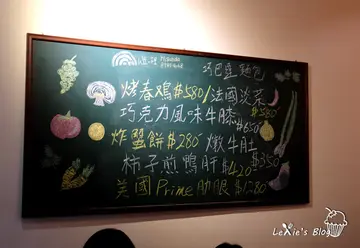 巧巴達麵包
烤春鷄$580/法國淡菜
$580
巧克力風味牛膝$650
炸蟹餅$280 燉牛肚
$350
柿子煎鴨肝$420
美國Prime肋眼$1280
LeXie's Blog